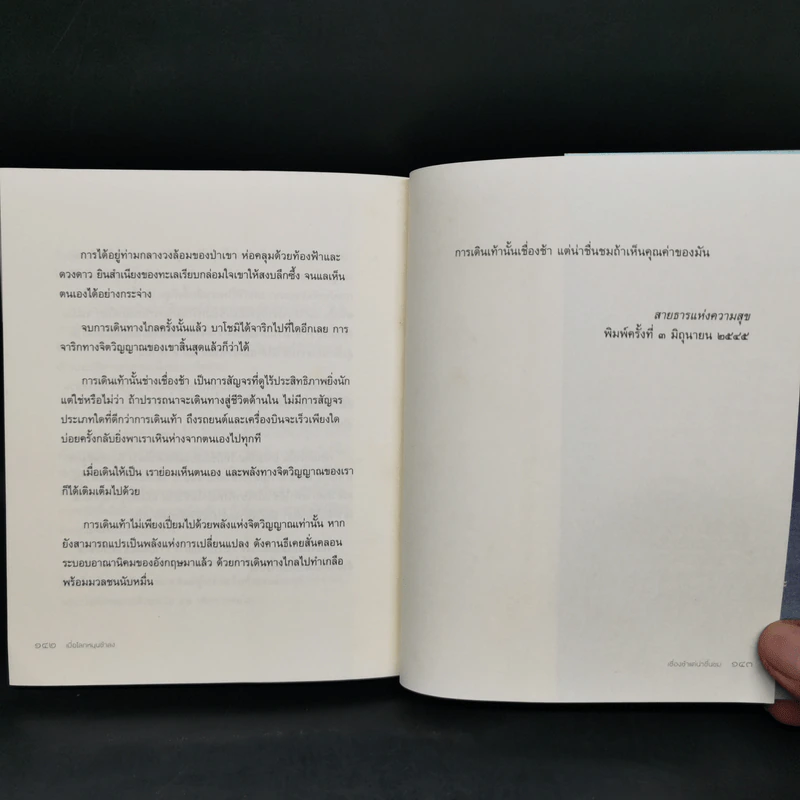 การได้อยู่ท่ามกลางวงล้อมของป่าเขา ห่อคลุมด้วยท้องฟ้าและ
ดวงดาว ยินสำเนียงของทะเลเรียบกล่อมใจเขาให้สงบลึกซึ้ง จนแลเห็น
ตนเองได้อย่างกระจ่าง
จบการเดินทางไกลครั้งนั้นแล้ว บาโชมิได้จาริกไปที่ใดอีกเลย การ
จาริกทางจิตวิญญาณของเขาสิ้นสุดแล้วก็ว่าได้
การเดินเท้านั้นช่างเชื่องช้า เป็นการสัญจรที่ดูไร้ประสิทธิภาพยิ่งนัก
แต่ใช่หรือไม่ว่า ถ้าปรารถนาจะเดินทางสู่ชีวิตด้านใน ไม่มีการสัญจร
ประเภทใดที่ดีกว่าการเดินเท้า ถึงรถยนต์และเครื่องบินจะเร็วเพียงใด
บ่อยครั้งกลับยิ่งพาเราเหินห่างจากตนเองไปทุกที
เมื่อเดินให้เป็น เราย่อมเห็นตนเอง และพลังทางจิตวิญญาณของเรา
ก็ได้เติมเต็มไปด้วย
การเดินเท้าไม่เพียงเปี่ยมไปด้วยพลังแห่งจิตวิญญาณเท่านั้น หาก
ยังสามารถแปรเป็นพลังแห่งการเปลี่ยนแปลง ดังคานธีเคยสั่นคลอน
ระบอบอาณานิคมของอังกฤษมาแล้ว ด้วยการเดินทางไกลไปทำเกลือ
พร้อมมวลชนนับหมื่น
๑๔๒ เมื่อโลกหมุนช้าลง
การเดินเท้านั้นเชื่องช้า แต่น่าชื่นชมถ้าเห็นคุณค่าของมัน
สายธารแห่งความสุข
พิมพ์ครั้งที่ ๓ มิถุนายน ๒๕๔๕
เชื่องช้าแต่น่าชื่นชม ๑๔๓